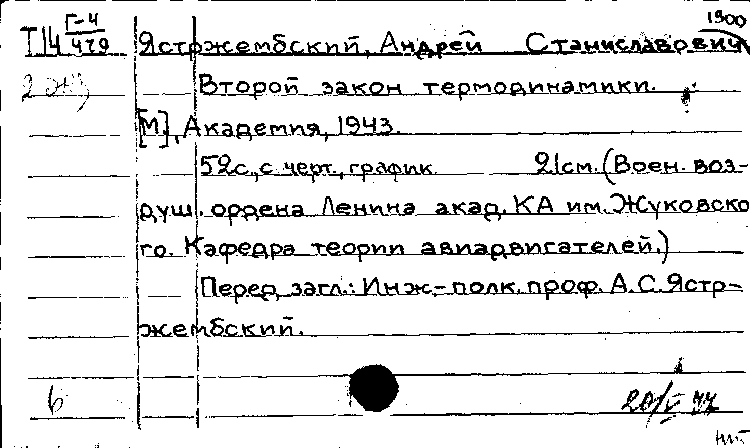 1900
Г-4
Т14 479 Ястржембский, Андрей Станиславович
2 экз
Второй закон термодинамики.
[М], Академия, 1943.
52с., с черт., график. 21см. (Воен. воз-
душ. ордена Ленина акад. КА им. Жуковско
го. Кафедра теории авиадвигателей.)
Перед загл.: Инж.-полк. проф. А.С. Ястр-
жембский.
б
20/V